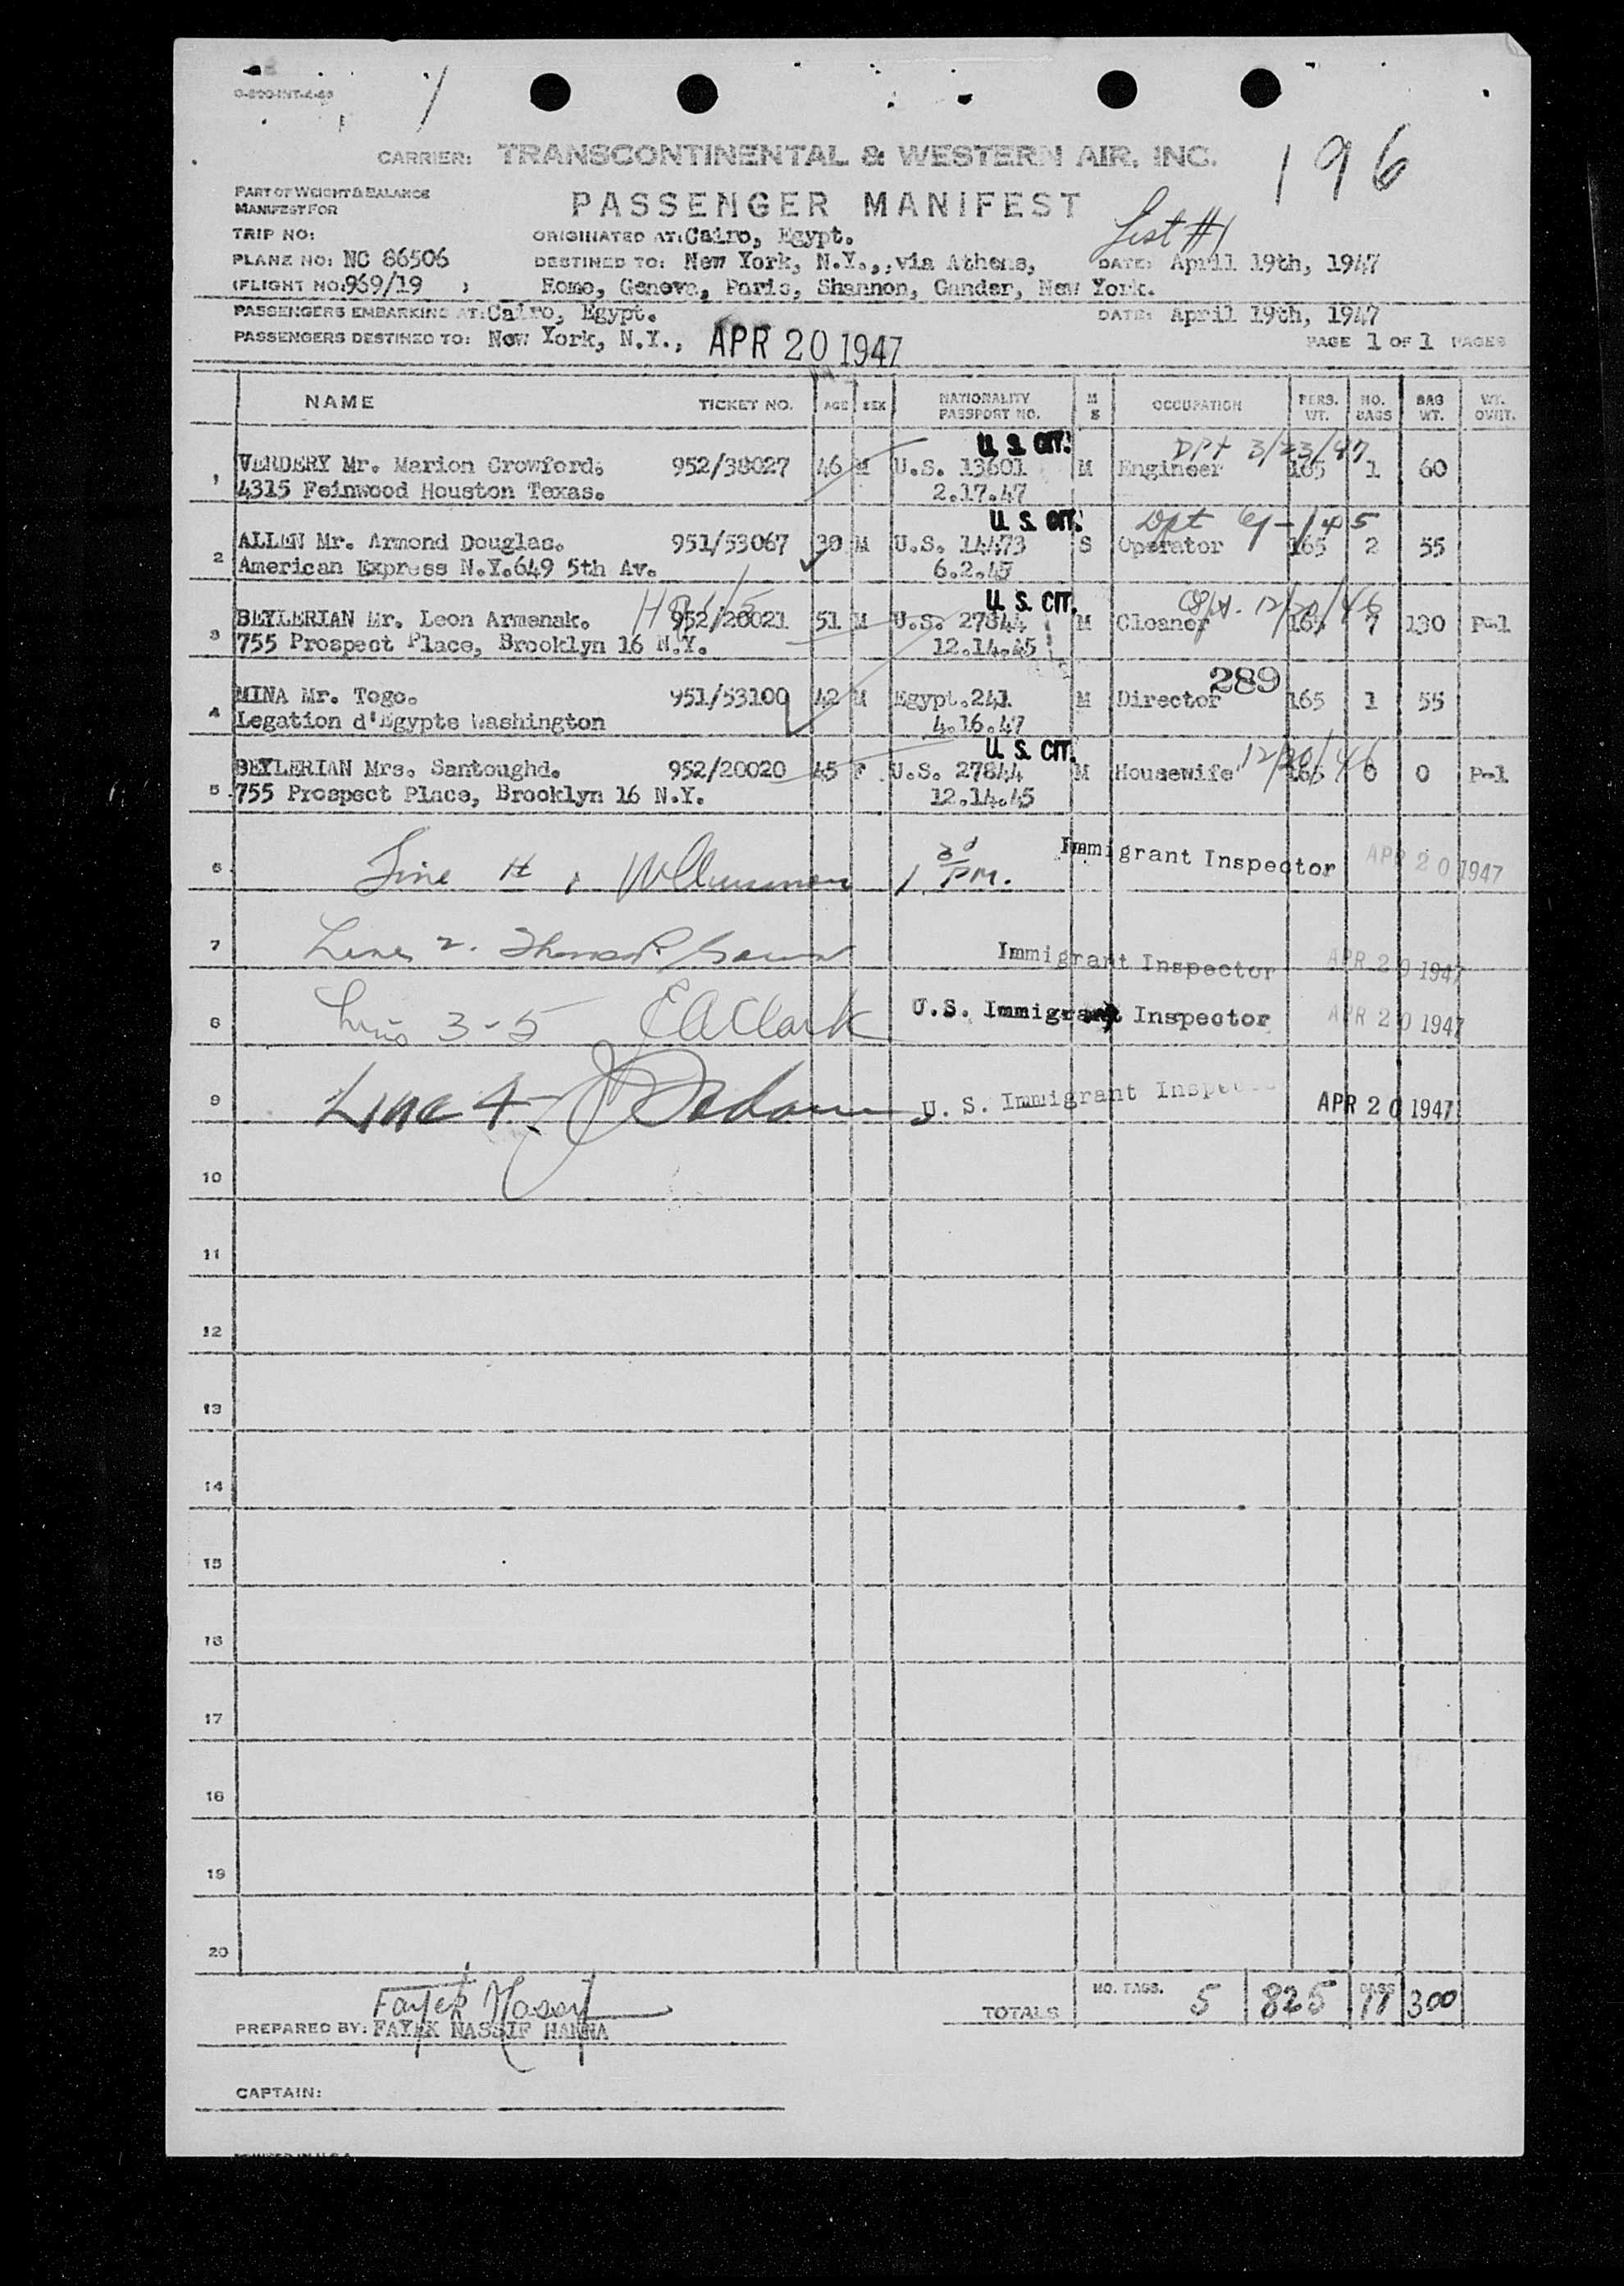 196
CARRIER: TRANSCONTINENTAL & WESTERN AIR, INC.
PART OF WEIGHT & BALANCE
MANIFEST FOR
PASSENGER MANIFEST
List #1
TRIP NO:
ORIGINATED AT: Cairo, Egypt.
PLANE NO: NC 86506
DESTINED TO: New York, N.Y., via Athens,
DATE: April 19th, 1947
(FLIGHT NO: 969/19 )
Rome, Geneva, Paris, Shannon, Gander, New York.
PASSENGERS EMBARKING AT: Cairo, Egypt.
DATE: April 19th, 1947
PASSENGERS DESTINED TO: New York, N.Y., APR 20 1947
PAGE 1 OF 1 PAGES
NAME TICKET NO. AGE SEX NATIONALITY PASSPORT NO. M S OCCUPATION PERS. WT. NO. BAGS BAG WT. WT. OVHT.
U. S. CIT. Dpt 3/23/47
1 VERDERY Mr. Marion Crowford. 952/38027 46 M U.S. 13601 M Engineer 165 1 60
4315 Feinwood Houston Texas. 2.17.47
U. S. CIT. Dpt
2 ALLEN Mr. Armond Douglas. 951/53067 30 M U.S. 14473 S Operator 165 2 55
American Express N.Y.649 5th Av. 6.2.45
U. S. CIT. 12/20/46
3 BEYLERIAN Mr. Leon Armenak. 952/20021 51 M U.S. 27844 M Cleaner 165 7 130 P-1
755 Prospect Place, Brooklyn 16 N.Y. 12.14.45
289
4 MINA Mr. Togo. 951/53100 42 M Egypt.241 M Director 165 1 55
Legation d'Egypte Washington 4.16.47
U. S. CIT. 12/20/46
5 BEYLERIAN Mrs. Santoughd. 952/20020 45 F U.S. 27844 M Housewife 165 0 0 P-1
755 Prospect Place, Brooklyn 16 N.Y. 12.14.45
6 Line # 1 PM. Immigrant Inspector APR 20 1947
7 Line 2. Immigrant Inspector APR 20 1947
8 Lines 3-5 E A Clark U.S. Immigrant Inspector APR 20 1947
9 Line 4 U. S. Immigrant APR 20 1947
10
11
12
13
14
15
16
17
18
19
20
TOTALS NO. PASS. 5 825 BAGS 11 300
PREPARED BY: FAYEK NASSIF HANNA
CAPTAIN: